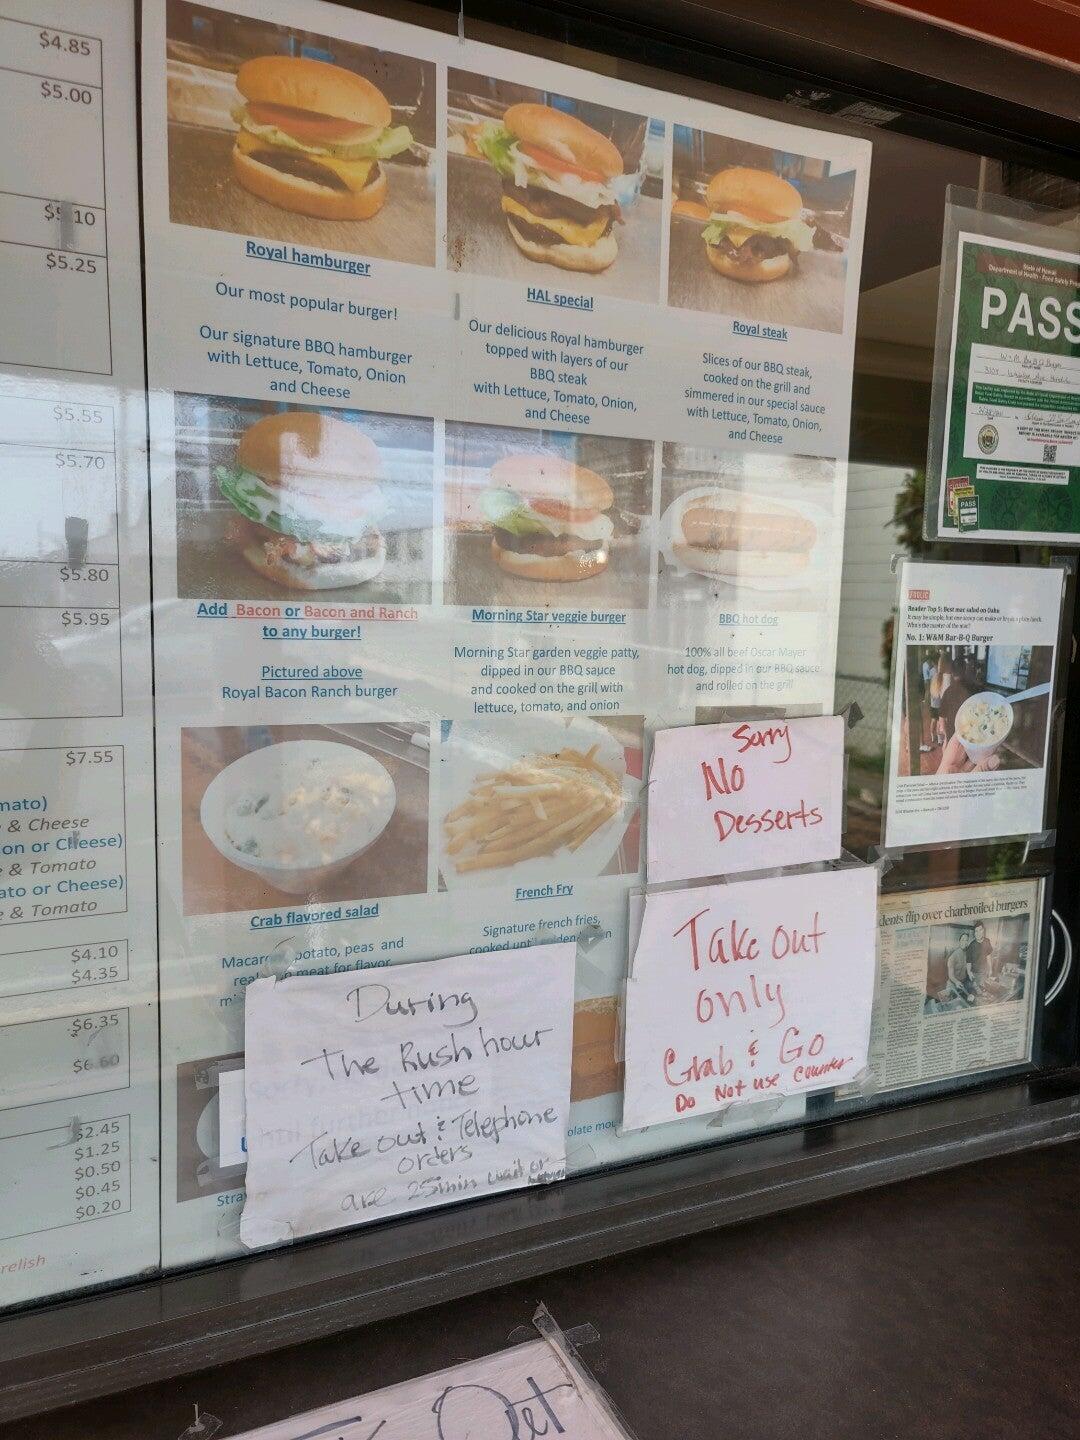 $4.85
$5.00
$5.25
$5.55
$5.70
$5.80
$5.95
$7.55
mato)
& Cheese
on or Cheese)
& Tomato
ato or Cheese)
& Tomato
$4.10
$4.35
$6.35
$6.60
$2.45
$1.25
$0.50
$0.45
$0.20
relish
Royal hamburger
Our most popular burger!
Our signature BBQ hamburger
with Lettuce, Tomato, Onion
and Cheese
HAL special
Our delicious Royal hamburger
topped with layers of our
BBQ steak
with Lettuce, Tomato, Onion,
and Cheese
Royal steak
Slices of our BBQ steak,
cooked on the grill and
simmered in our special sauce
with Lettuce, Tomato, Onion,
and Cheese
Add Bacon or Bacon and Ranch
to any burger!
Pictured above
Royal Bacon Ranch burger
Morning Star veggie burger
Morning Star garden veggie patty,
dipped in our BBQ sauce
and cooked on the grill with
lettuce, tomato, and onion
BBQ hot dog
100% all beef Oscar Mayer
hot dog, dipped in our BBQ sauce
and rolled on the grill
Crab flavored salad
potato, peas and
meat for flavor
French Fry
Signature french fries,
cooked until
Sorry
No
Desserts
Take out
only
Grab & Go
Do Not use Counter
During
The Rush hour
time
Take out & Telephone
orders
are 25min wait or
Stra
olate
State of Hawaii
Department of Health - Food Safety
PASS
W & M Bar B Q Burger
PASS
Reader Top 5: Best mac salad on Oahu
Who's the master of the mac?
No. 1: W&M Bar-B-Q Burger
dents flip over charbroiled burgers
Out